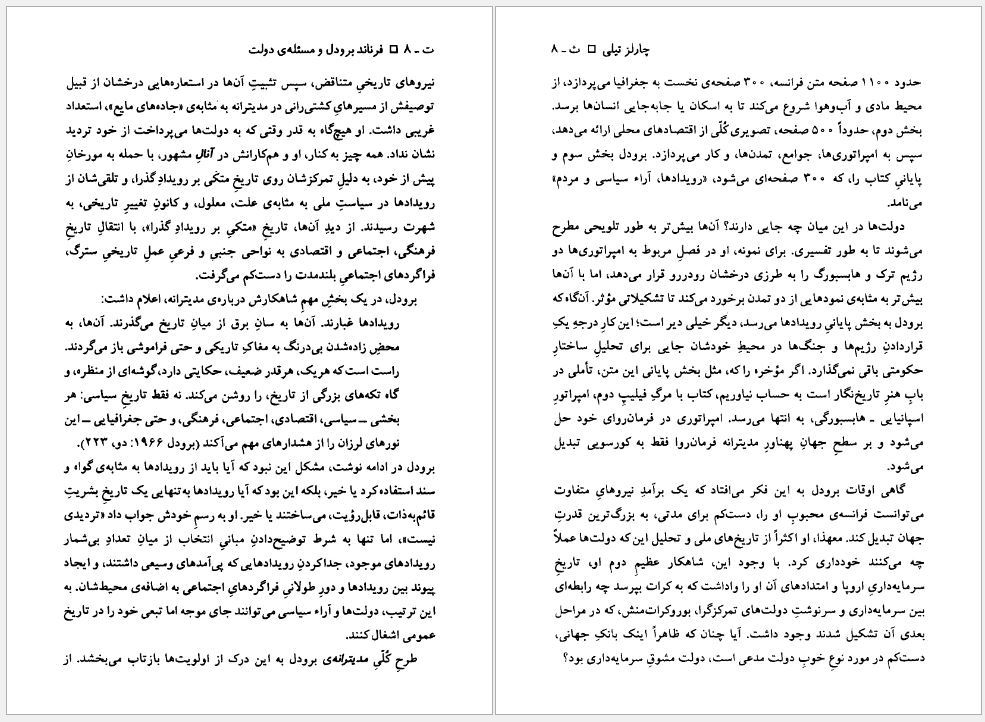 ت ـ ۸ □ فرناند برودل و مسئله‌ی دولت
نیروهای تاریخیِ متناقض، سپس تثبیتِ آن‌ها در استعاره‌هایی درخشان از قبیل
توصیفش از مسیرهایِ کشتی‌رانی در مدیترانه به مثابه‌ی «جاده‌های مایع»، استعداد
غریبی داشت. او هیچ‌گاه به قدر وقتی که به دولت‌ها می‌پرداخت از خود تردید
نشان نداد. همه چیز به کنار، او و هم‌کارانش در آنالِ مشهور، با حمله به مورخانِ
پیش از خود، به دلیلِ تمرکزشان روی تاریخِ متکی بر رویدادِ گذرا، و تلقی‌شان از
رویدادها در سیاستِ ملی به مثابه‌ی علت، معلول، و کانونِ تغییرِ تاریخی، به
شهرت رسیدند. از دیدِ آن‌ها، تاریخِ «متکی بر رویدادِ گذرا»، با انتقالِ تاریخِ
فرهنگی، اجتماعی و اقتصادی به نواحی جنبی و فرعیِ عملِ تاریخیِ سترگ،
فراگردهای اجتماعیِ بلندمدت را دست‌کم می‌گرفت.
برودل، در یک بخشِ مهمِ شاهکارش درباره‌ی مدیترانه، اعلام داشت:
رویدادها غبارند. آن‌ها به سانِ برق از میانِ تاریخ می‌گذرند. آن‌ها، به
محضِ زاده‌شدن بی‌درنگ به مغاکِ تاریکی و حتی فراموشی باز می‌گردند.
راست است که هر یک، هرقدر ضعیف، حکایتی دارد، گوشه‌ای از منظره، و
گاه تکه‌های بزرگی از تاریخ، را روشن می‌کند. نه فقط تاریخِ سیاسی: هر
بخشی ــ سیاسی، اقتصادی، اجتماعی، فرهنگی، و حتی جغرافیایی ــ این
نورهای لرزان را از هشدارهای مهم می‌آکند (برودل ۱۹۶۶: دو، ۲۲۳).
برودل در ادامه نوشت، مشکل این نبود که آیا باید از رویدادها به مثابه‌ی گواه و
سند استفاده کرد یا خیر، بلکه این بود که آیا رویدادها به‌تنهایی یک تاریخِ بشریتِ
قائم‌به‌ذات، قابل‌رؤیت، می‌ساختند یا خیر. او به رسمِ خودش جواب داد «تردیدی
نیست»، اما تنها به شرط توضیح‌دادنِ مبانیِ انتخاب از میانِ تعدادِ بی‌شمار
رویدادهای موجود، جداکردنِ رویدادهایی که پی‌آمدهای وسیعی داشتند، و ایجاد
پیوند بین رویدادها و دورِ طولانیِ فراگردهایِ اجتماعی به اضافه‌ی محیط‌شان. به
این ترتیب، دولت‌ها و آراء سیاسی می‌توانند جای موجه اما تبعی خود را در تاریخ
عمومی اشغال کنند.
طرحِ کُلّیِ مدیترانه‌ی برودل به این درک از اولویت‌ها بازتاب می‌بخشد. از
چارلز تیلی □ ث ـ ۸
حدود ۱۱۰۰ صفحه متن فرانسه، ۳۰۰ صفحه‌ی نخست به جغرافیا می‌پردازد، از
محیط مادی و آب‌وهوا شروع می‌کند تا به اسکان یا جابه‌جایی انسان‌ها برسد.
بخش دوم، حدوداً ۵۰۰ صفحه، تصویری کُلّی از اقتصادهای محلی ارائه می‌دهد،
سپس به امپراتوری‌ها، جوامع، تمدن‌ها، و کار می‌پردازد. برودل بخش سوم و
پایانیِ کتاب را، که ۳۰۰ صفحه‌ای می‌شود، «رویدادها، آراء سیاسی و مردم»
می‌نامد.
دولت‌ها در این میان چه جایی دارند؟ آن‌ها بیش‌تر به طور تلویحی مطرح
می‌شوند تا به طور تفسیری. برای نمونه، او در فصلِ مربوط به امپراتوری‌ها دو
رژیم ترک و هابسبورگ را به طرزی درخشان رودررو قرار می‌دهد، اما با آن‌ها
بیش‌تر به مثابه‌ی نمودهایی از دو تمدن برخورد می‌کند تا تشکیلاتی مؤثر. آن‌گاه که
برودل به بخش پایانیِ رویدادها می‌رسد، دیگر خیلی دیر است؛ این کارِ درجهِ یکِ
قراردادنِ رژیم‌ها و جنگ‌ها در محیطِ خودشان جایی برای تحلیلِ ساختارِ
حکومتی باقی نمی‌گذارد. اگر مؤخره را که، مثل بخش پایانی این متن، تأملی در
بابِ هنرِ تاریخ‌نگار است به حساب نیاوریم، کتاب با مرگِ فیلیپِ دوم، امپراتورِ
اسپانیایی ـ هابسبورگی، به انتها می‌رسد. امپراتوری در فرمان‌روای خود حل
می‌شود و بر سطحِ جهانِ پهناورِ مدیترانه فرمان‌روا فقط به کورسویی تبدیل
می‌شود.
گاهی اوقات برودل به این فکر می‌افتاد که یک برآمدِ نیروهایِ متفاوت
می‌توانست فرانسه‌ی محبوبِ او را، دست‌کم برای مدتی، به بزرگ‌ترین قدرتِ
جهان تبدیل کند. معهذا، او اکثراً از تاریخ‌های ملی و تحلیل این‌که دولت‌ها عملاً
چه می‌کنند خودداری کرد. با وجود این، شاهکار عظیمِ دوم او، تاریخِ
سرمایه‌داریِ اروپا و امتدادهای آن او را واداشت که به کرات بپرسد چه رابطه‌ای
بین سرمایه‌داری و سرنوشتِ دولت‌های تمرکزگرا، بوروکرات‌منش، که در مراحل
بعدی آن تشکیل شدند وجود داشت. آیا چنان که ظاهراً اینک بانکِ جهانی،
دست‌کم در مورد نوعِ خوبِ دولت مدعی است، دولت مشوقِ سرمایه‌داری بود؟